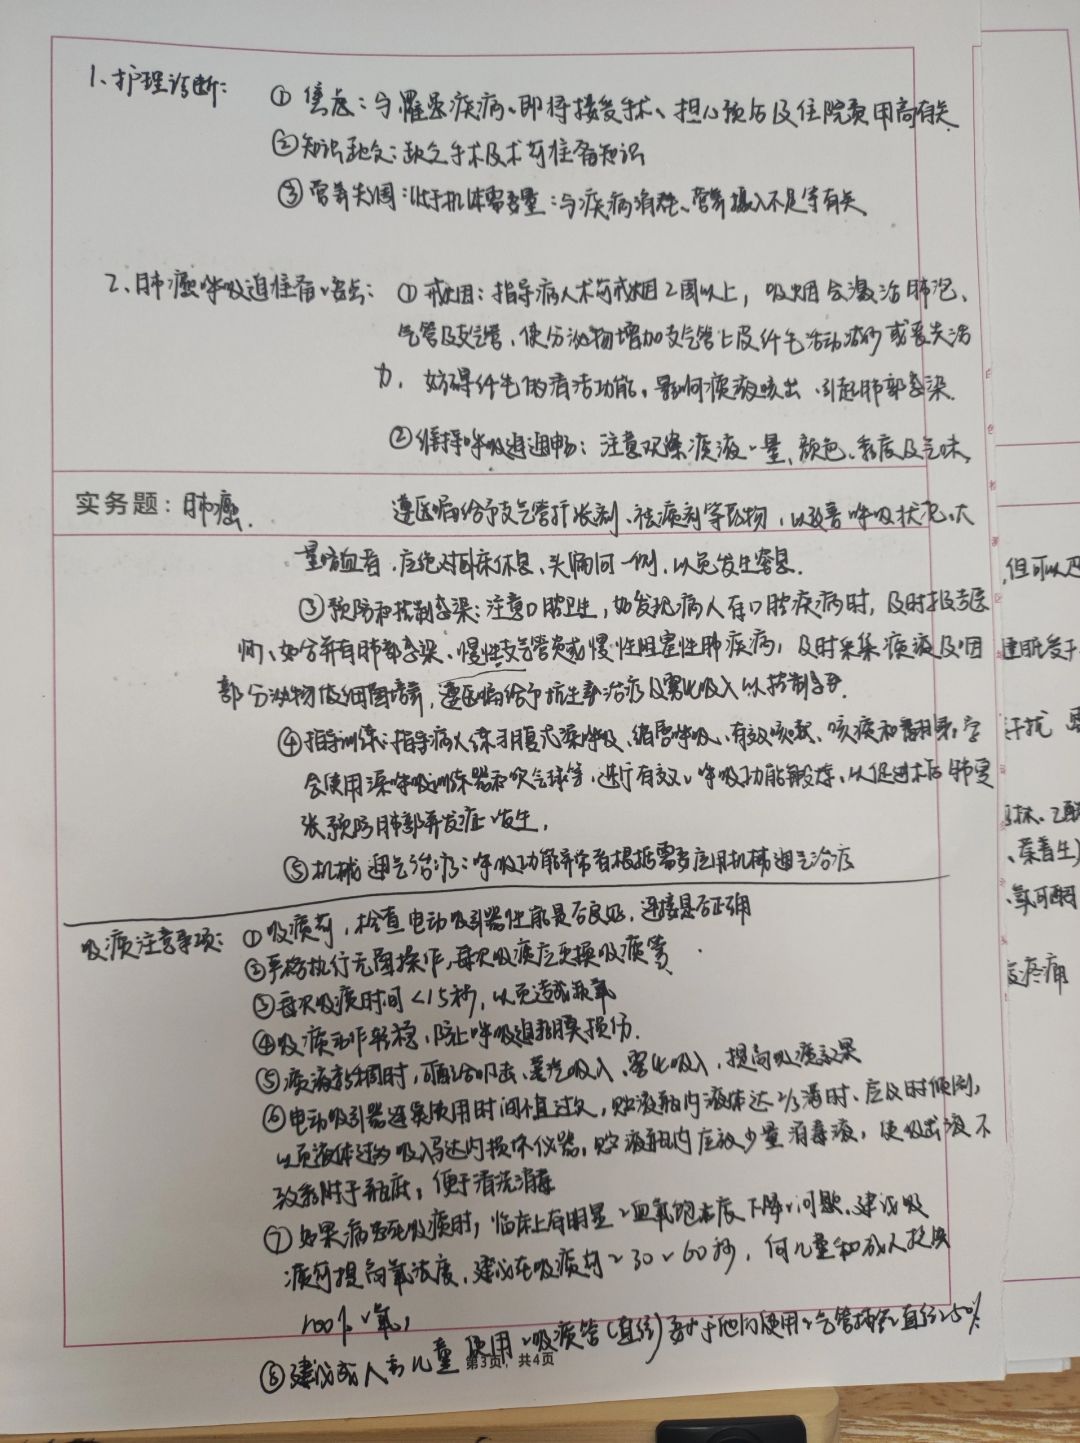 1、护理诊断：
① 焦虑：与罹患疾病、即将接受手术、担心预后及住院费用高有关
②知识缺乏：缺乏手术及术前准备知识
③ 营养失调：低于机体需要量：与疾病消耗、营养摄入不足等有关
2、肺癌呼吸道准备要点： ① 戒烟：指导病人术前戒烟2周以上，吸烟会激活肺泡、
气管及支气管，使分泌物增加支气管上皮纤毛活动减少或丧失活
力，妨碍纤毛的清洁功能，影响痰液咳出，引起肺部感染.
②维持呼吸道通畅：注意观察痰液、量、颜色、黏度及气味，
实务题：肺癌. 遵医嘱给予支气管扩张剂、祛痰剂等药物，以改善呼吸状况，大
量咯血者，应绝对卧床休息，头偏向一侧，以免发生窒息.
③预防和控制感染：注意口腔卫生，如发现病人有口腔疾病时，及时报告医
师、如合并有肺部感染、慢性支气管炎或慢性阻塞性肺疾病，及时采集痰液及咽
部分泌物做细菌培养，遵医嘱给予抗生素治疗及雾化吸入以控制感染.
④指导训练：指导病人练习腹式深呼吸、缩唇呼吸、有效咳嗽、咳痰和翻身，学
会使用深呼吸训练器和吹气球等，进行有效、呼吸功能锻炼，以促进术后肺复
张预防肺部并发症、发生，
⑤机械通气治疗：呼吸功能异常者根据需要应用机械通气治疗
吸痰注意事项： ①吸痰前，检查电动吸引器性能是否良好，连接是否正确
②严格执行无菌操作，每次吸痰应更换吸痰管
③每次吸痰时间<15秒，以免造成缺氧
④吸痰动作轻稳，防止呼吸道黏膜损伤.
⑤痰液黏稠时，可配合叩击、蒸汽吸入、雾化吸入，提高吸痰效果
⑥电动吸引器连续使用时间不宜过久，贮液瓶内液体达2/3满时、应及时倾倒，
以免液体过多吸入马达内损坏仪器，贮液瓶内应放少量消毒液，使吸出液不
致黏附于瓶底，便于清洗消毒
⑦如果病人在吸痰时，临床上有明显、血氧饱和度下降、问题，建议吸
痰前提高氧浓度，建议在吸痰前、30~60秒，向儿童和成人提供
100%、氧，
⑧建议成人和儿童使用、吸痰管（直径）要小于他们使用、气管插管、直径、50%
第3页，共4页
但可以
干扰
疼痛